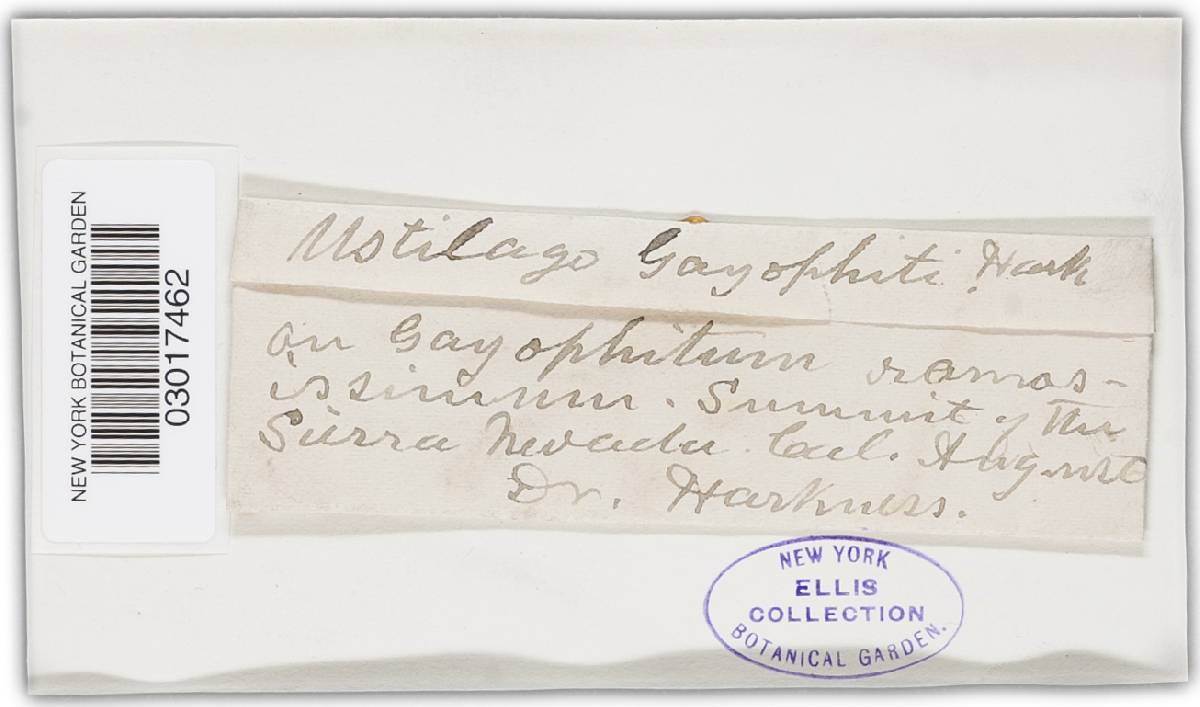 NEW YORK BOTANICAL GARDEN
03017462
Ustilago Gayophiti. Hark
on Gayophitum ramos-
issimum. Summit of the
Sierra Nevada Cal. August
Dr. Harkness.
NEW YORK
ELLIS
COLLECTION
BOTANICAL GARDEN.